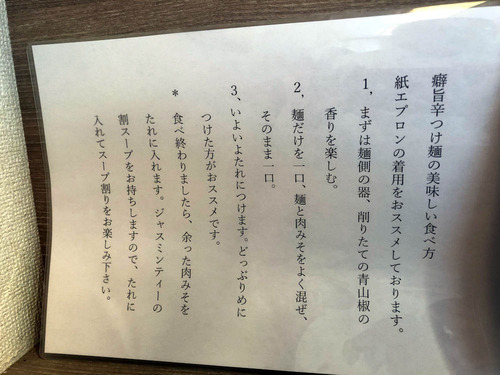 癖旨辛つけ麺の美味しい食べ方
紙エプロンの着用をおススメしております。
1，まずは麺側の器、削りたての青山椒の
香りを楽しむ。
2，麺だけを一口、麺と肉みそをよく混ぜ、
そのまま一口。
3、いよいよたれにつけます。どっぷりめに
つけた方がおススメです。
* 食べ終わりましたら、余った肉みそを
たれに入れます。ジャスミンティーの
割スープをお持ちしますので、たれに
入れてスープ割りをお楽しみ下さい。